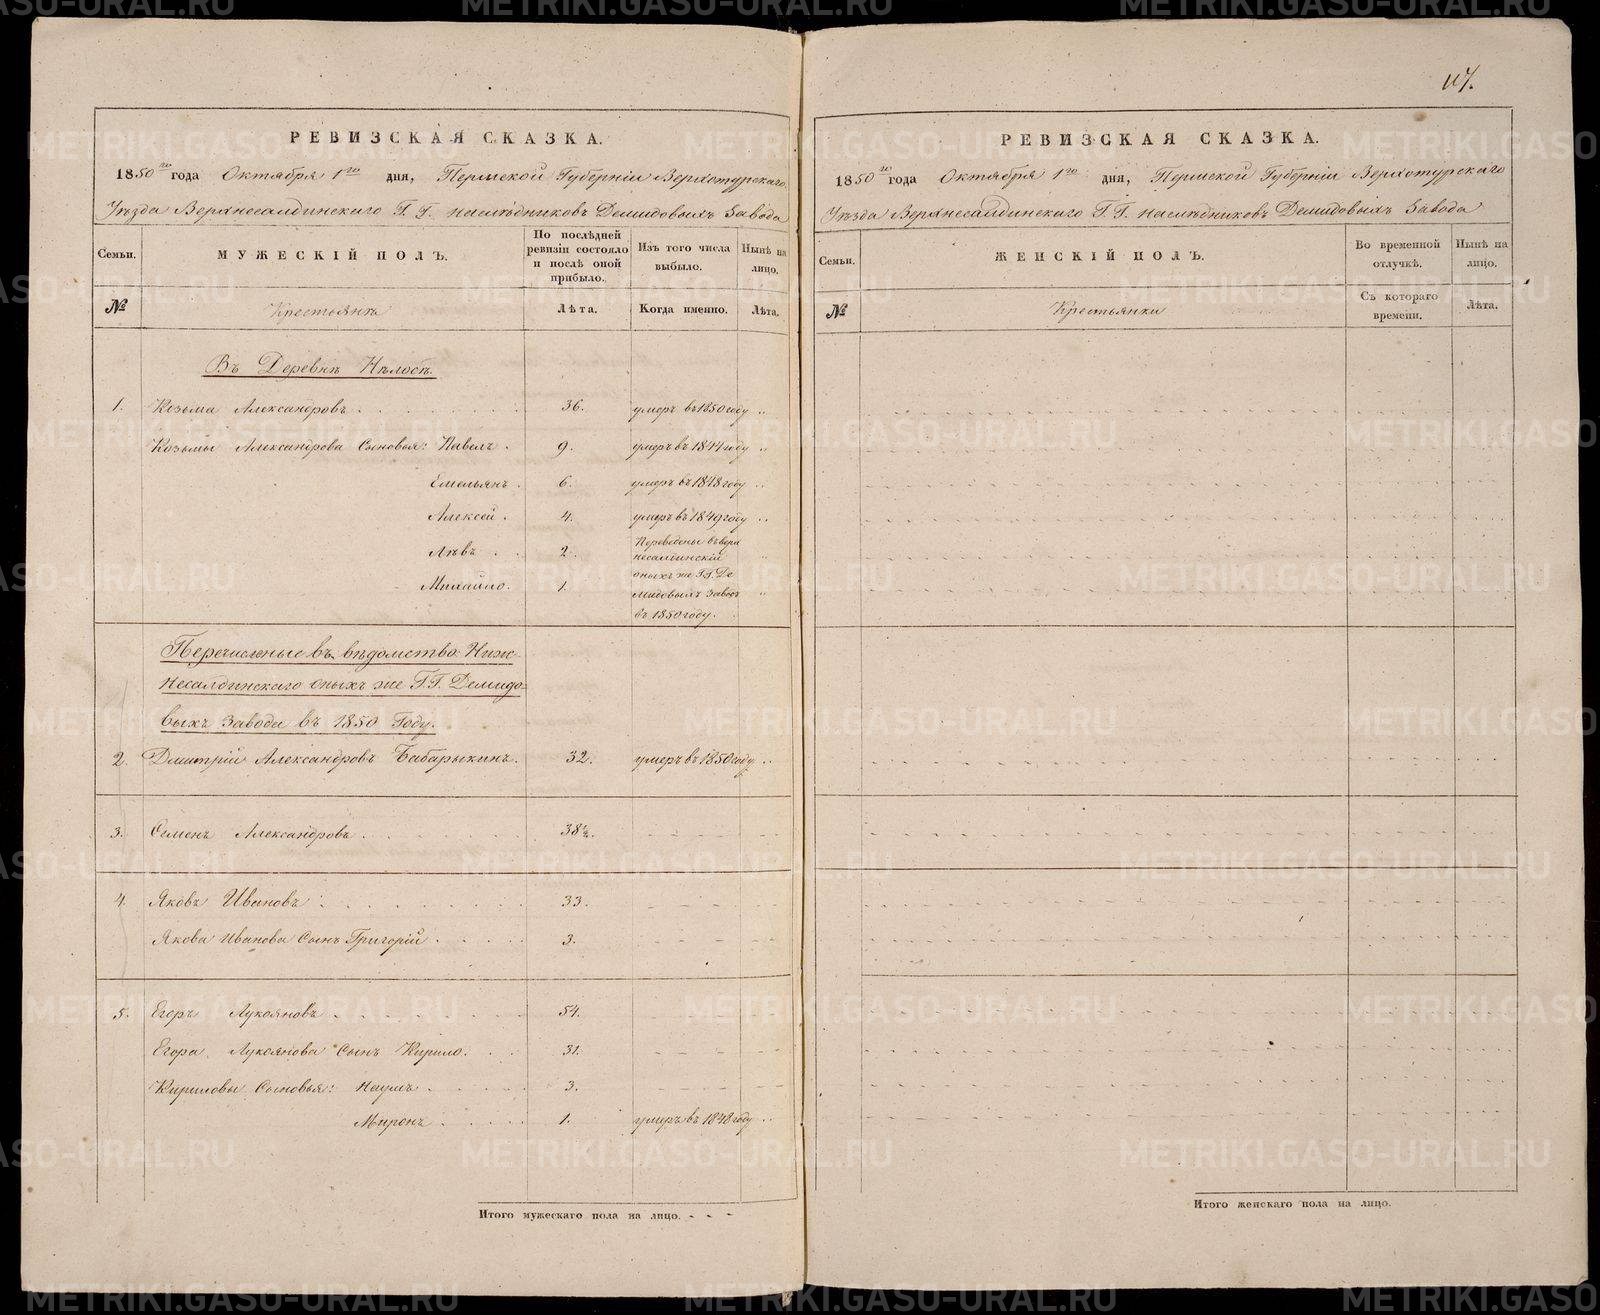 117.
РЕВИЗСКАЯ СКАЗКА.
1850го года Октября 1го дня, Пермской Губерніи Верхотурскаго
Уѣзда Верхнесалдинскаго Г.Г. наслѣдниковъ Демидовыхъ Завода
Семьи. МУЖЕСКІЙ ПОЛЪ. По послѣдней ревизіи состояло и послѣ оной прибыло. Изъ того числа выбыло. Нынѣ на лицо.
№ Крестьянъ Лѣта. Когда именно. Лѣта.
Въ Деревнѣ Нѣлобѣ
1. Козьма Александровъ 36. умеръ въ 1850 году
Козьмы Александрова Сыновья: Павелъ. 9. умеръ въ 1844 году
Емельянъ. 6. умеръ въ 1848 году
Алексей. 4. умеръ въ 1849 году
Лѣвъ 2. Переведены въ верх
несалдинскій
Михайло. 1. оныхъ же Г.Г. Де
мидовыхъ завод
въ 1850 году.
Перечисленные въ вѣдомство Ниж-
Несалдинскаго оныхъ же Г.Г. Демидо=
выхъ завода въ 1850 Году.
2. Дмитрій Александровъ Бабарыкинъ. 32. умеръ въ 1850 году
3. Семенъ Александровъ 38½.
4. Яковъ Ивановъ 33.
Якова Иванова Сынъ Григорій 3.
5. Егоръ Лукояновъ 54.
Егора Лукоянова Сынъ Кирило. 31.
Кириловы Сыновья: Наумъ 3.
Миронъ 1. умеръ въ 1848 году
Итого мужескаго пола на лицо. - - -
РЕВИЗСКАЯ СКАЗКА.
1850го года Октября 1го дня, Пермской Губерніи Верхотурскаго
Уѣзда Верхнесалдинскаго Г.Г. наслѣдниковъ Демидовыхъ Завода
Семьи. ЖЕНСКІЙ ПОЛЪ. Во временной отлучкѣ. Нынѣ на лицо.
№ Крестьянки Съ котораго времени. Лѣта.
Итого женскаго пола на лицо.
METRIKI.GASO-URAL.RU